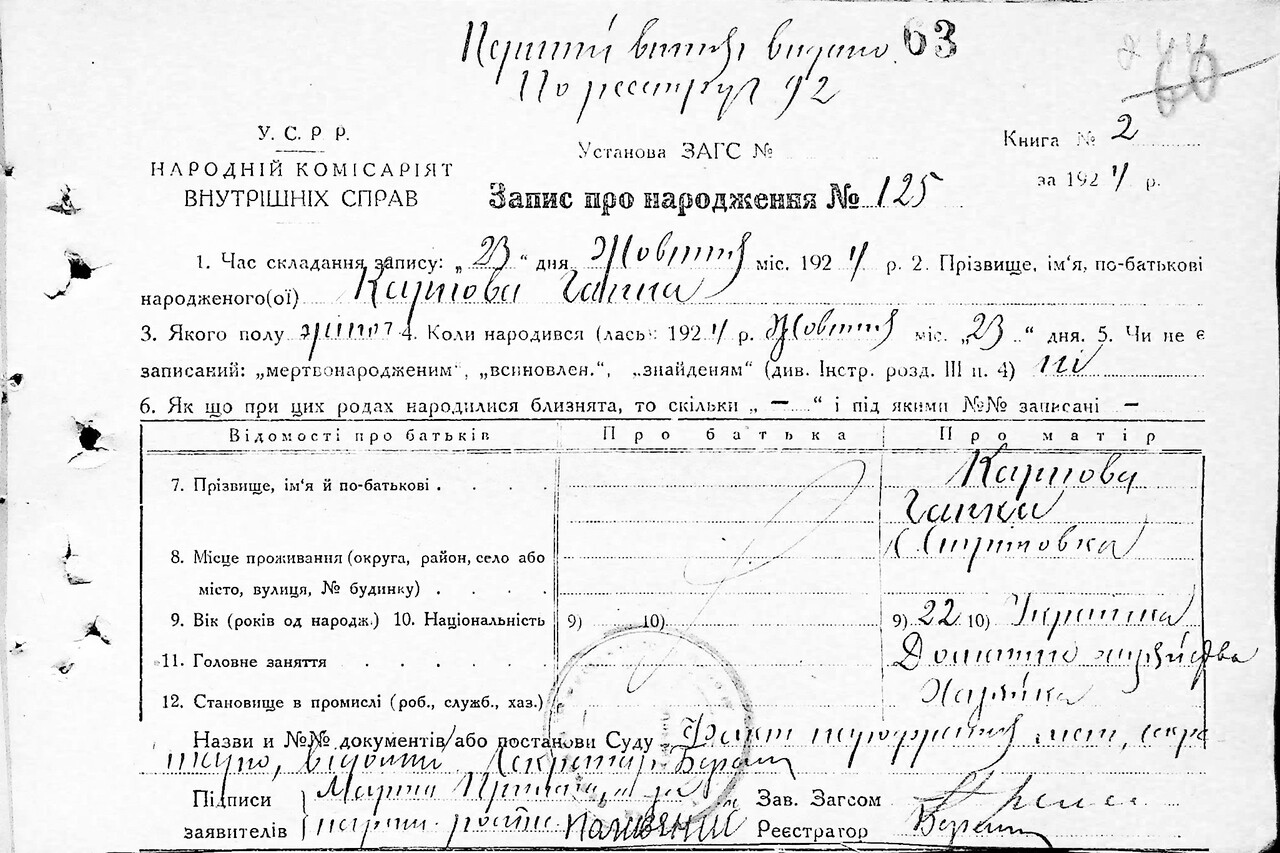 Перший витяг видано 63
По реєстру 92
60
У. С. Р. Р.
НАРОДНІЙ КОМІСАРІЯТ
ВНУТРІШНІХ СПРАВ
Установа ЗАГС №
Книга № 2
за 1924 р.
Запис про народження № 125
1. Час складання запису: „23“ дня Жовтня міс. 1924 р. 2. Прізвище, ім'я, по-батькові
народженого(ої) Карпова Ганна
3. Якого полу жіноч 4. Коли народився (лась) 1924 р. Жовтня міс. „23“ дня. 5. Чи не є
записаний: „мертвонародженим“, „всиновлен.“, „знайденям“ (див. Інстр. розд. III п. 4) ні
6. Як що при цих родах народилися близнята, то скільки „ — “ і під якими №№ записані —
Відомості про батьків Про батька Про матір
7. Прізвище, ім'я й по-батькові . . . . Карпова
Ганна
8. Місце проживання (округа, район, село або
місто, вулиця, № будинку) . . . .
9. Вік (років од народж.) 10. Національність 9) 10) 9) 22 10) Українка
11. Головне заняття . . . . . Домашнє
12. Становище в промислі (роб., служб., хаз.) Хазяйка
Назви и №№ документів або постанови Суду Факт
Секретар
Підписи Марта Зав. Загсом
заявителів Реєстратор